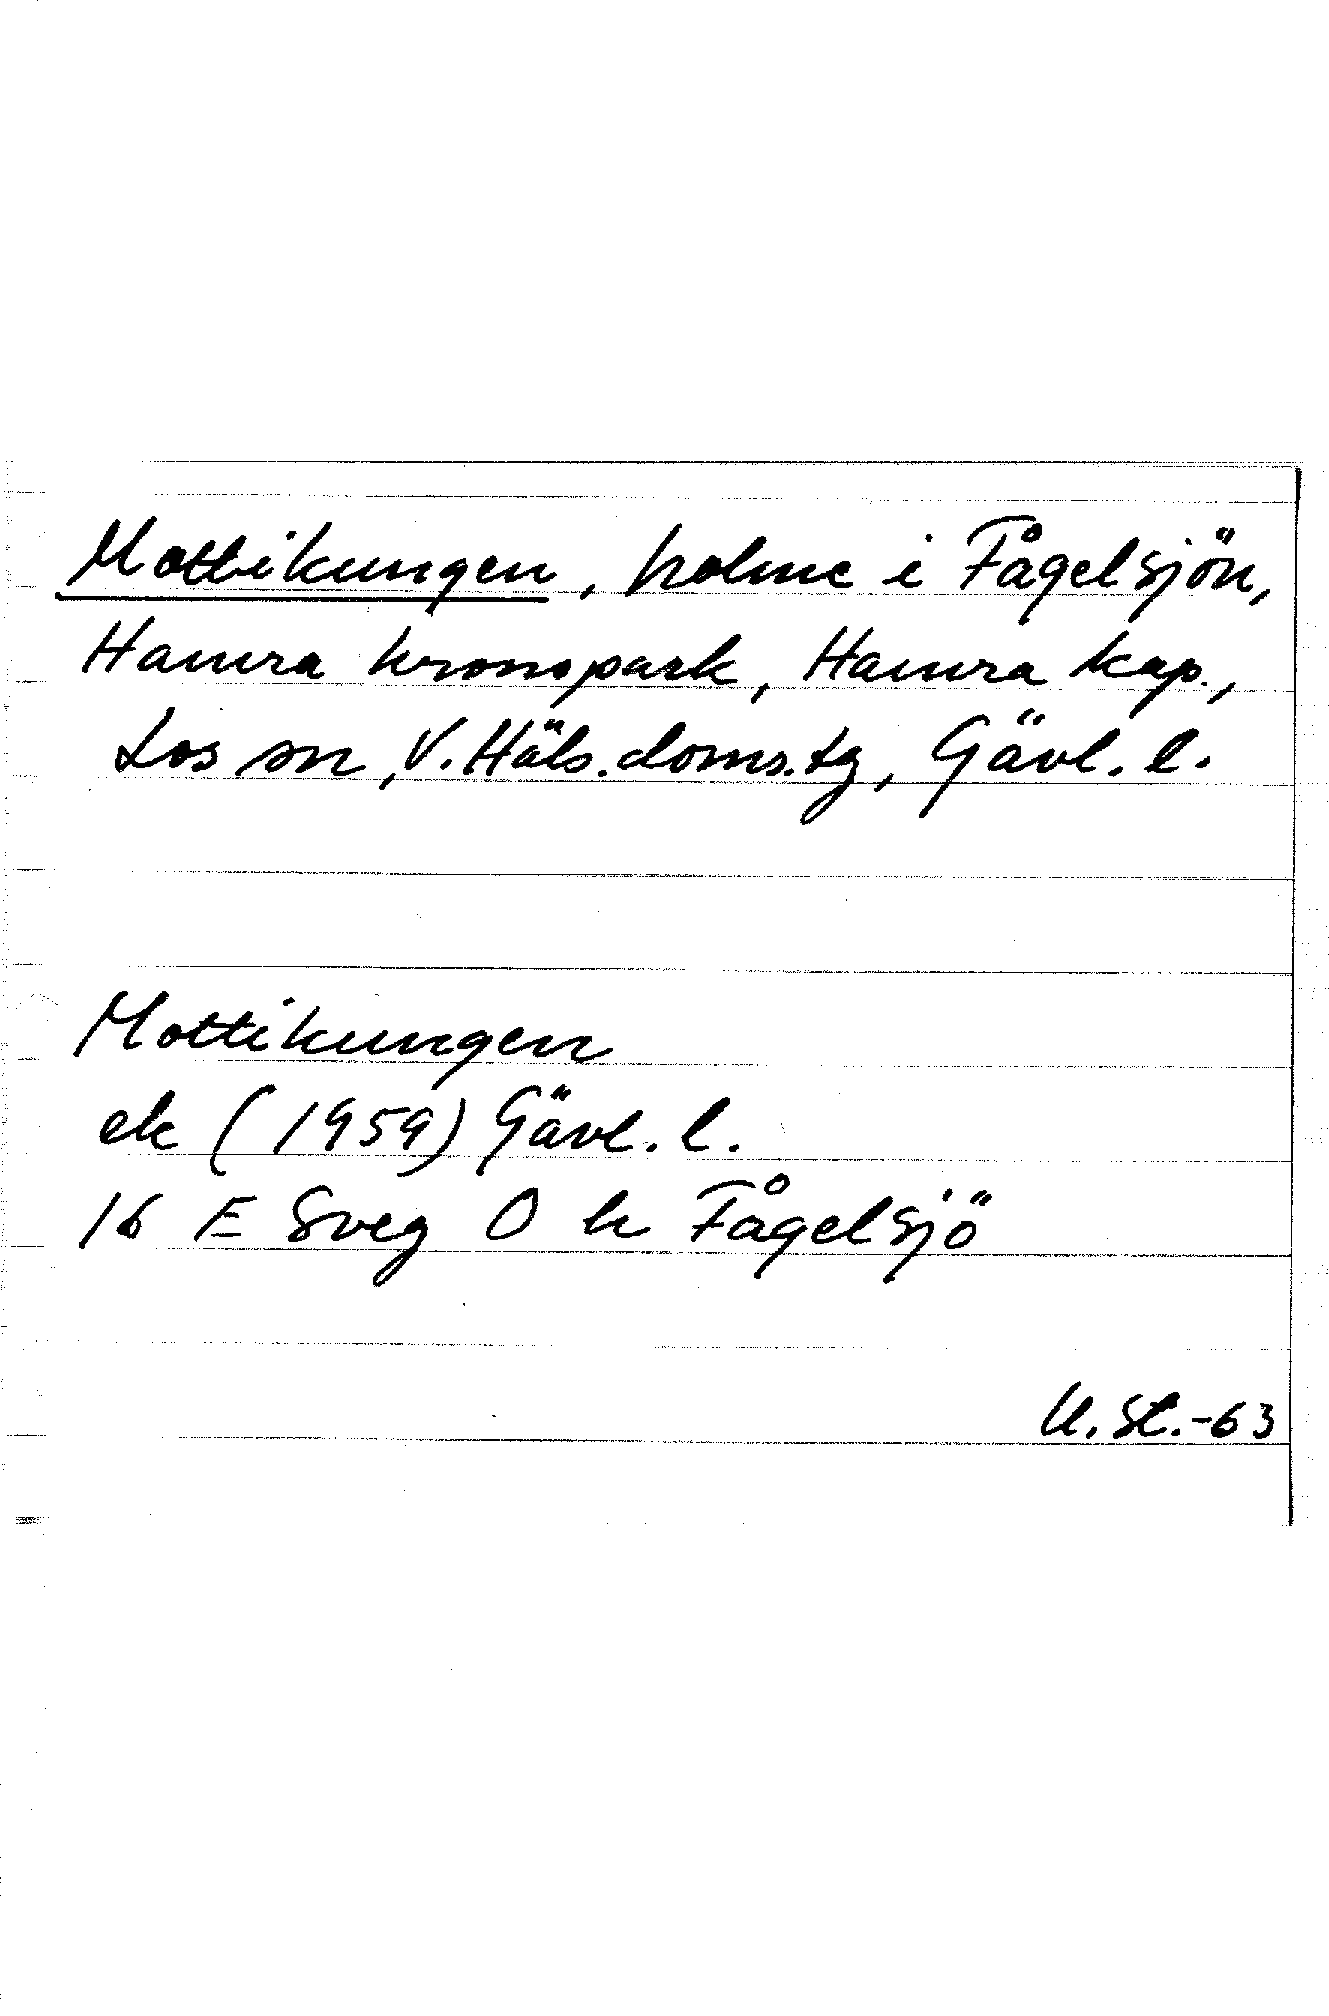 Mottikungen, holme i Fågelsjön,
Hamra kronopark, Hamra kap.,
Los sn, V. Häls. doms. tg, Gävl. l.
Mottikungen
ek (1959) Gävl. l.
16 E Sveg O h Fågelsjö
U. St.-63